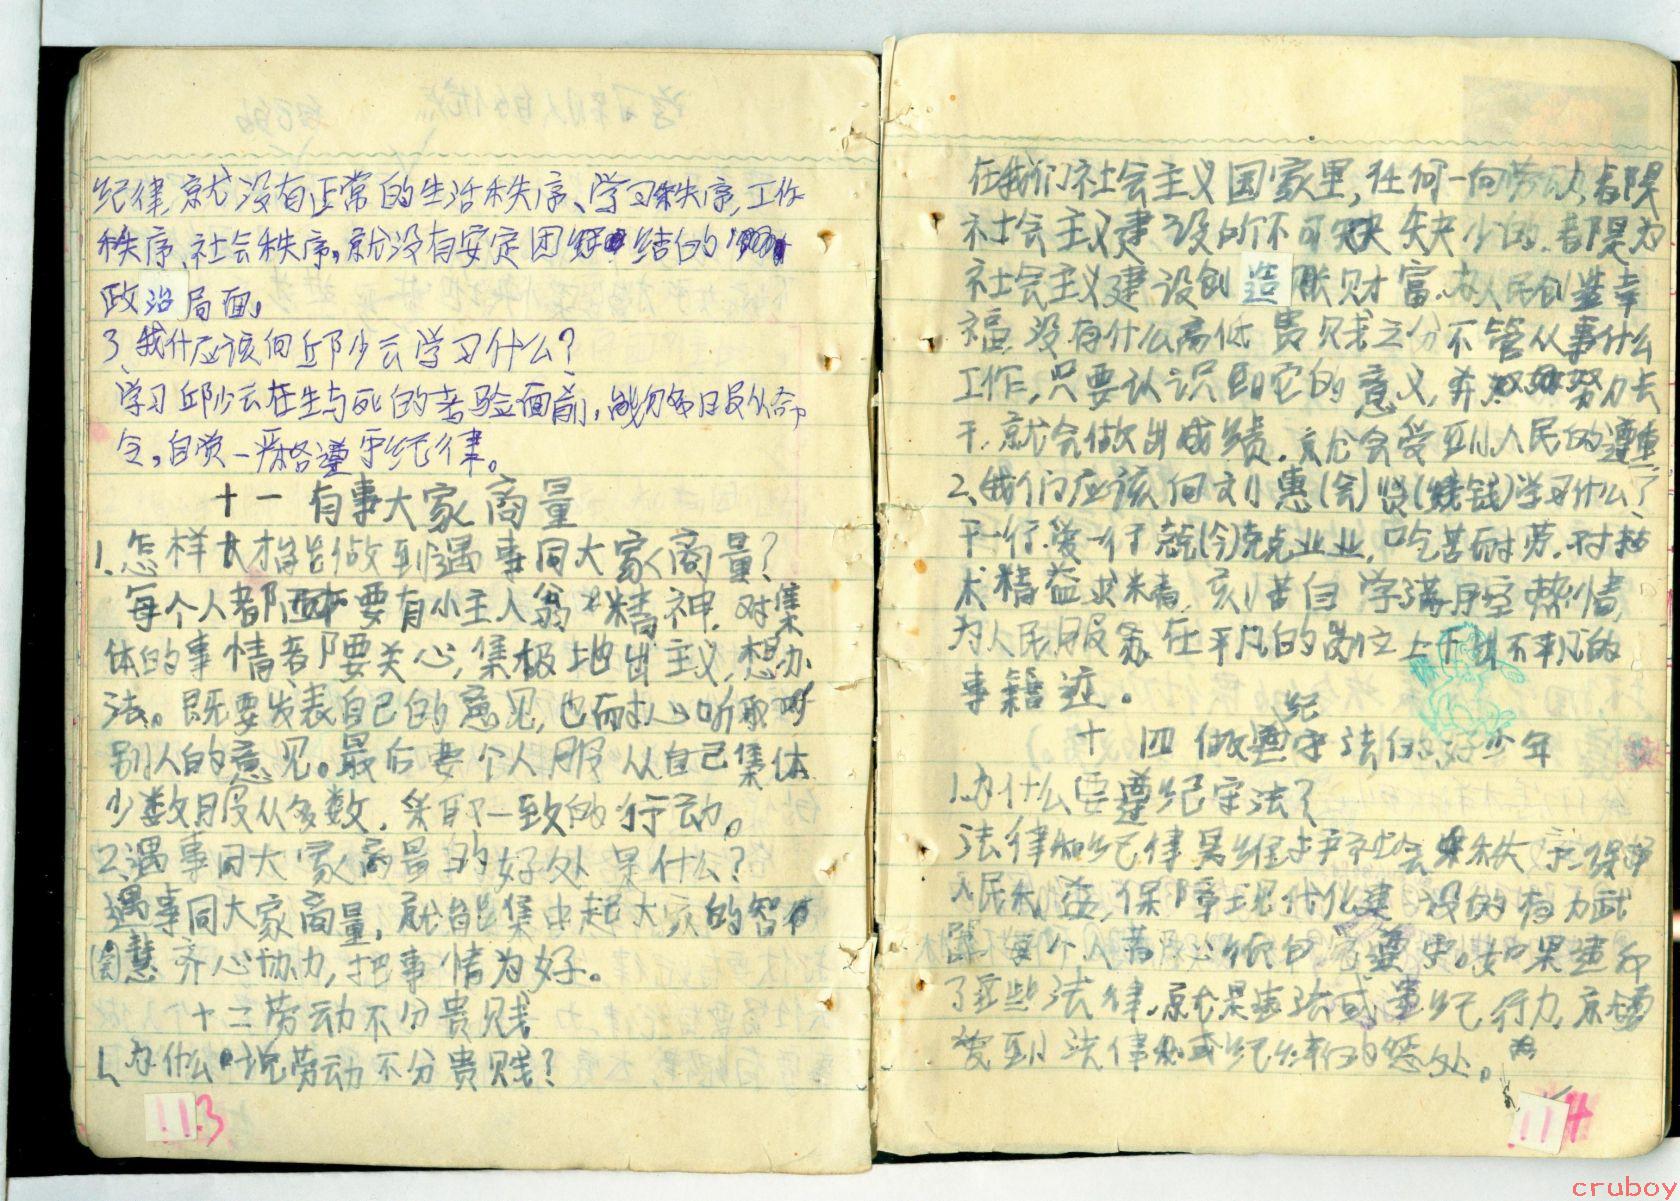 纪律,就没有正常的生活秩序、学习秩序,工作
秩序、社会秩序,就没有安定团结的
政治局面。
3、我们应该向邱少云学习什么?
学习邱少云在生与死的考验面前,能够服从命
令,自觉严格遵守纪律。
十一 有事大家商量
1、怎样才能做到遇事同大家商量?
每个人都要有小主人翁精神,对集
体的事情都要关心,集极地出主义,想办
法。既要发表自己的意见,也耐心听取
别人的意见。最后要个人服从自己集体
少数服从多数,采取一致的行动。
2、遇事同大家商量的好处是什么?
遇事同大家商量,就能集中起大家的智
慧 齐心协力,把事情为好。
十三劳动不分贵贱
1、为什么说劳动不分贵贱?
113
在我们社会主义国家里,任何一向劳动,都是
社会主义建设所不可缺少的,都是为
社会主义建设创造财富,为人民创造幸
福,没有什么高低贵贱之分不管从事什么
工作,只要认识到它的意义,并努力去
干,就会做出成绩,就会受到人民的尊重
2、我们应该向刘惠(会)贤(线钱)学习什么?
干一行,爱一行兢兢业业,吃苦耐劳,对技
术精益求精,刻苦自学满腔热情,
为人民服务在平凡的岗位上干出不平凡的
事籍迹。
十四 做遵纪守法的好少年
1.为什么要遵纪守法?
法律和纪律是维护社会秩序,保护
人民利益,保障现代化建设的有力武
器每个人都必须自觉遵守。如果违和
了这些法律,就是违法或违纪行为,就要
受到法律和或纪律的惩处。
114
cruboy